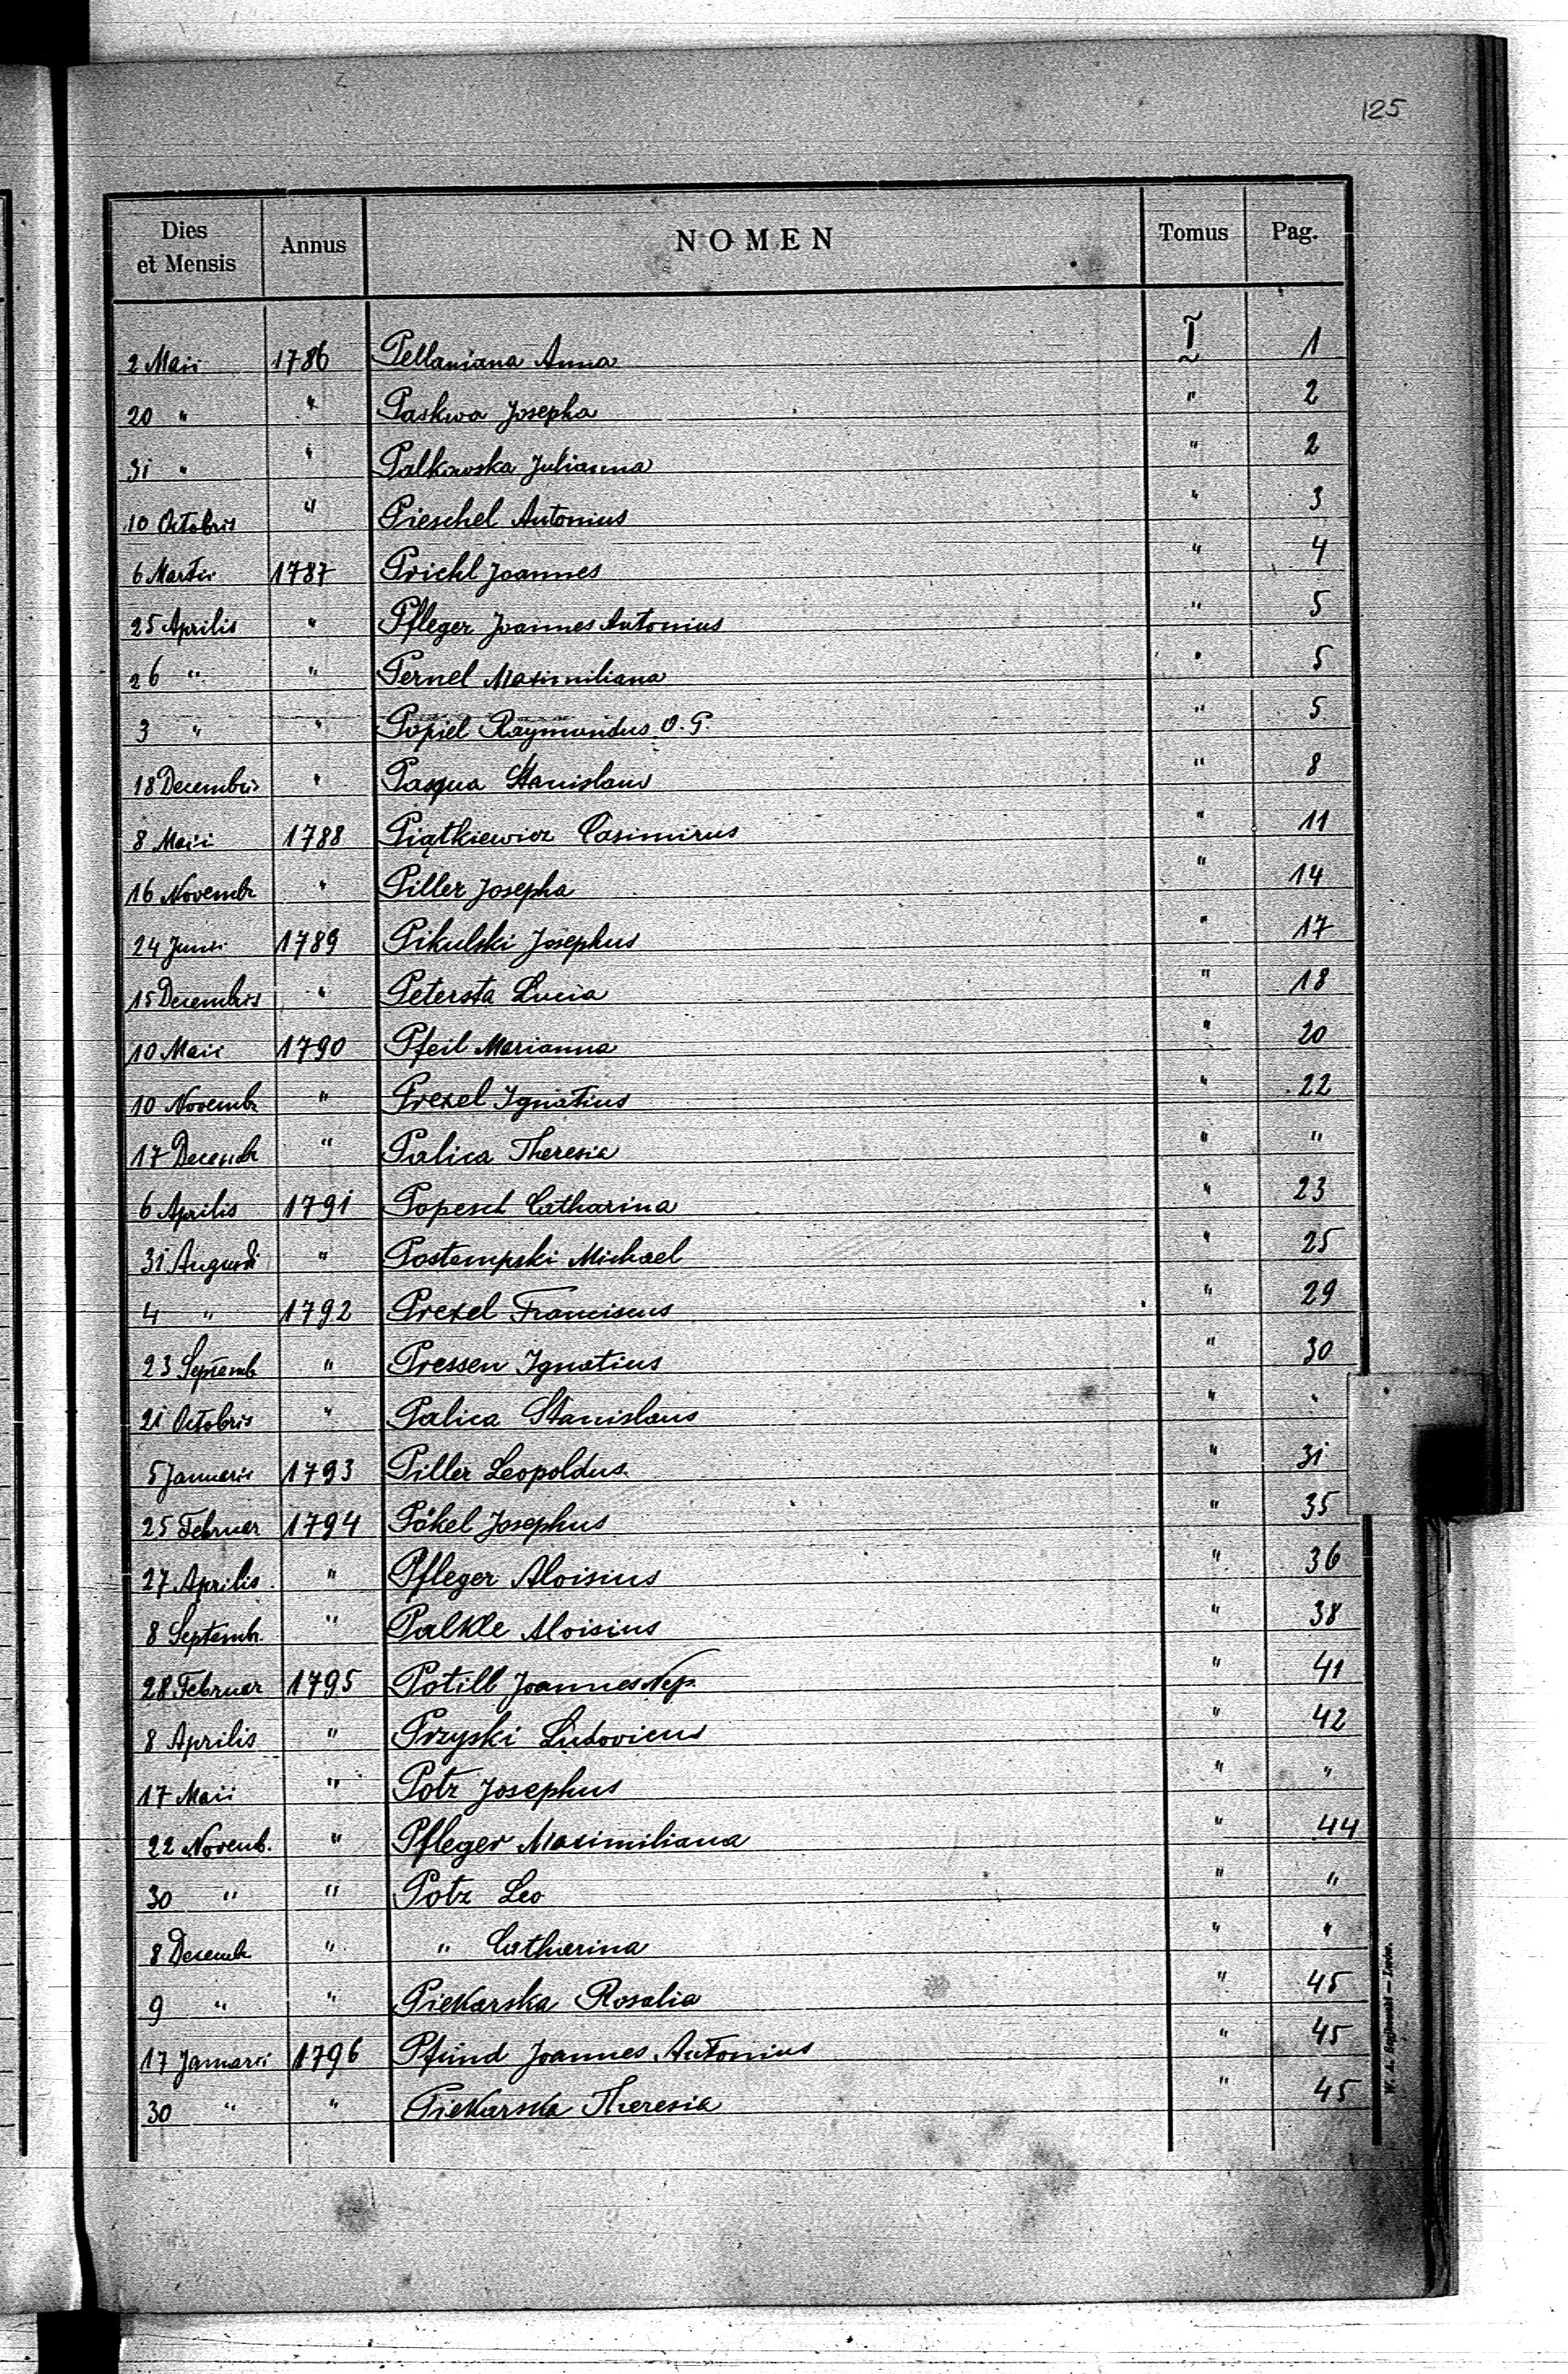 125
Dies et Mensis Annus NOMEN Tomus Pag.
2 Maii 1786 Pellaniana Anna I 1
20 " " Paskwa Josepha " 2
31 " " Palkowska Julianna " 2
10 Octobris " Pieschel Antonius " 3
6 Martii 1787 Prichl Joannes " 4
25 Aprilis " Pfleger Joannes Antonius " 5
26 " " Pernel Maximiliana " 5
3 " " Popiel Raymundus O. P. " 5
18 Decembris " Pasqua Stanislaus " 8
8 Maii 1788 Piątkiewicz Casimirus " 11
16 Novembr " Piller Josepha " 14
24 Junii 1789 Pikulski Josephus " 17
15 Decembris " Petersta Lucia " 18
10 Maii 1790 Pfeil Marianna " 20
10 Novembr " Prexel Ignatius " 22
17 Decembr " Palica Theresia " "
6 Aprilis 1791 Popesch Catharina " 23
31 Augusti " Postempski Michael " 25
4 " 1792 Prexel Franciscus " 29
23 Septemb " Pressen Ignatius " 30
21 Octobris " Palica Stanislaus " "
5 Januarii 1793 Piller Leopoldus " 31
25 Februar 1794 Pökel Josephus " 35
27 Aprilis " Pfleger Aloisius " 36
8 Septembr. " Palkle Aloisius " 38
28 Februar 1795 Potill Joannes Nep. " 41
8 Aprilis " Przyski Ludovicus " 42
17 Maii " Potz Josephus " "
22 Novemb. " Pfleger Maximiliana " 44
30 " " Potz Leo " "
8 Decemb. " " Catharina " "
9 " " Piekarska Rosalia " 45
17 Januarii 1796 Pfund Joannes Antonius " 45
30 " " Piekarska Theresia " 45